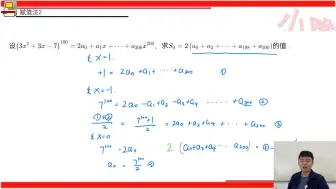 赋值法2
小
设(3x²+3x-7)¹⁰⁰=2a₀+a₁x+⋯+a₂₀₀x²⁰⁰，求S₀=2(a₀+a₂+⋯+a₁₉₈+a₂₀₀)的值.
令 x=1.
+1=2a₀+a₁+⋯+a₂₀₀ ①
令 x=-1.
7¹⁰⁰=2a₀-a₁+a₂-a₃+a₄ ⋯ +a₂₀₀ ②
(①+②)/2=(7¹⁰⁰+1)/2=2a₀+a₂+a₄+⋯+a₂₀₀ ③
令 x=0
7¹⁰⁰=2a₀
a₀=7¹⁰⁰/2 ④
2[a₀+a₂+a₄⋯a₂₀₀]=